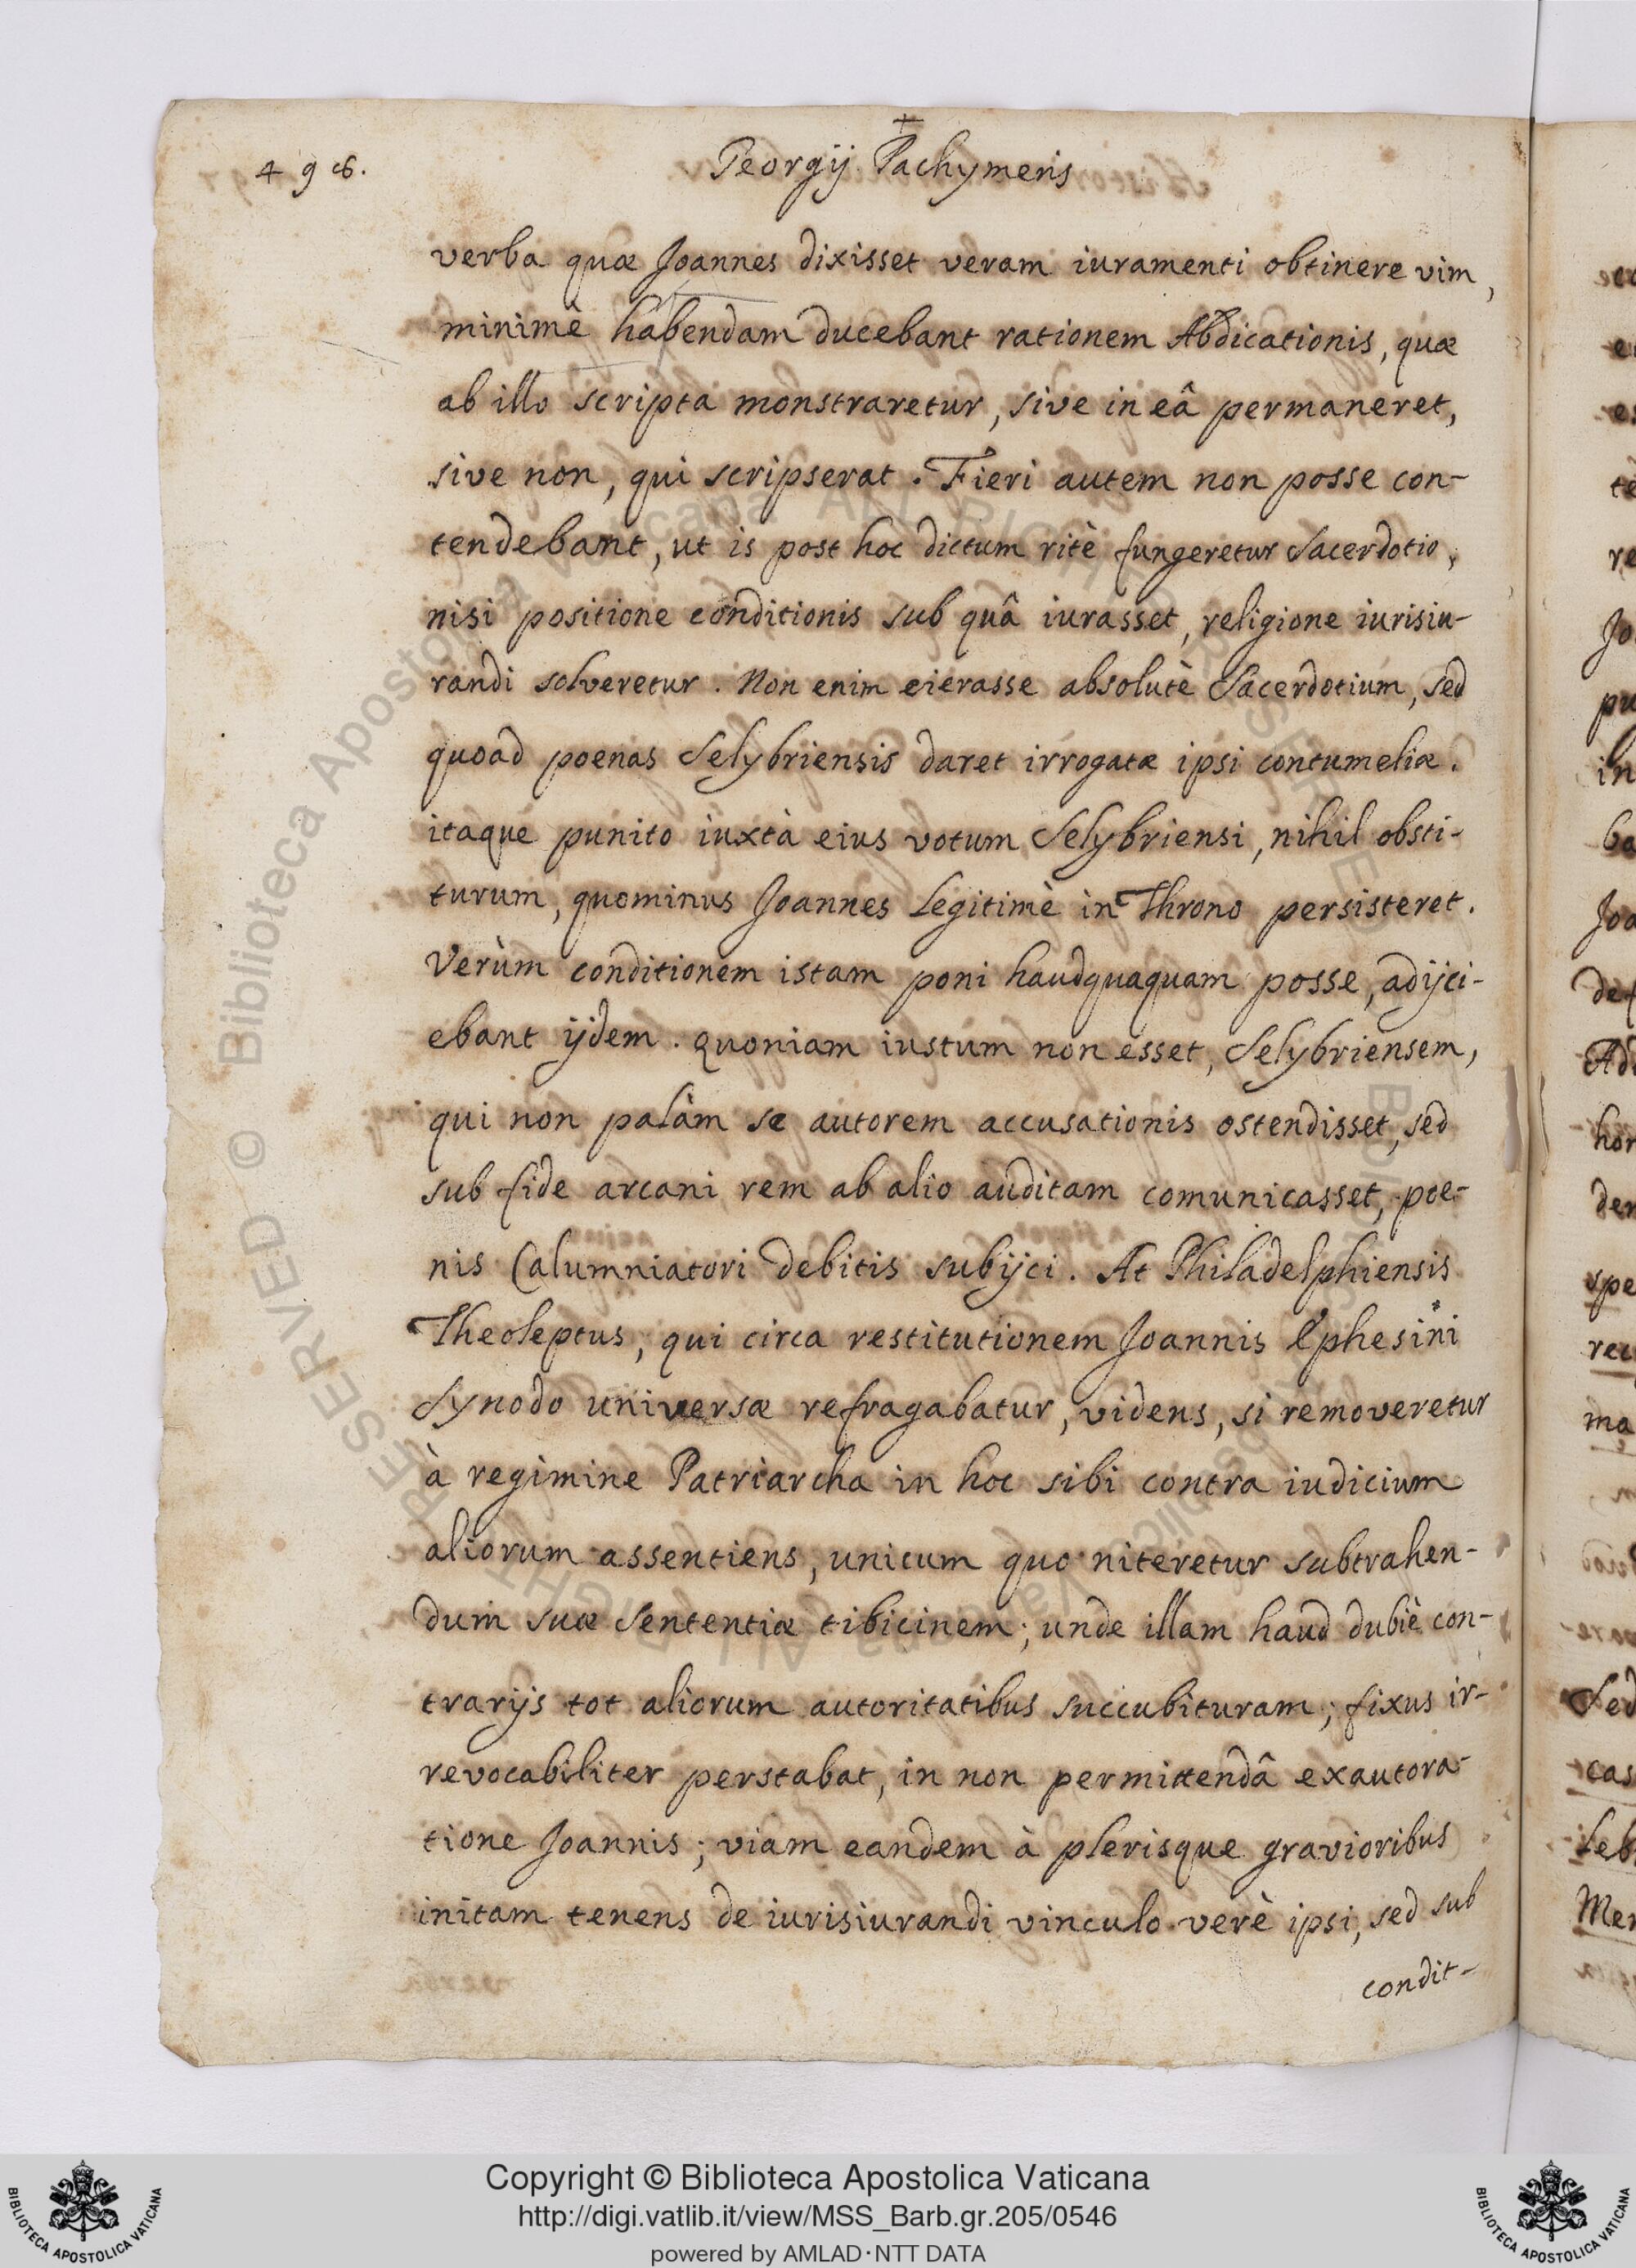 496.
Georgij Pachymeris
verba quæ Joannes dixisset veram iuramenti obtinere vim,
minimè habendam ducebant rationem Abdicationis, quæ
ab illo scripta monstraretur, sive in eâ permaneret,
sive non, qui scripserat. Fieri autem non posse con-
tendebant, ut is post hoc dictum ritè fungeretur Sacerdotio,
nisi positione conditionis sub quâ iurasset, religione iurisiu-
randi solveretur. Non enim eierasse absolutè Sacerdotium, sed
quoad poenas Selybriensis daret irrogatæ ipsi contumeliæ.
itaque punito iuxtà eius votum Selybriensi, nihil obsti-
turum, quominus Joannes Legitimè in Throno persisteret.
Verùm conditionem istam poni haudquaquam posse, adijci-
ebant ijdem. quoniam iustum non esset, Selybriensem,
qui non palàm se autorem accusationis ostendisset, sed
sub fide arcani rem ab alio auditam comunicasset, poe-
nis Calumniatori debitis subijci. At Philadelphiensis
Theoleptus, qui circa restitutionem Joannis Ephesini
Synodo universæ refragabatur, videns, si removeretur
à regimine Patriarcha in hoc sibi contra iudicium
aliorum assentiens, unicum quo niteretur subtrahen-
dum suæ Sententiæ tibicinem; unde illam haud dubiè con-
trarijs tot aliorum autoritatibus succubituram; fixus ir-
revocabiliter perstabat, in non permittendâ exautora-
tione Joannis; viam eandem à plerisque gravioribus
initam tenens de iurisiurandi vinculo verè ipsi, sed sub
condit-
Copyright © Biblioteca Apostolica Vaticana
http://digi.vatlib.it/view/MSS_Barb.gr.205/0546
powered by AMLAD·NTT DATA
BIBLIOTECA APOSTOLICA VATICANA
BIBLIOTECA APOSTOLICA VATICANA